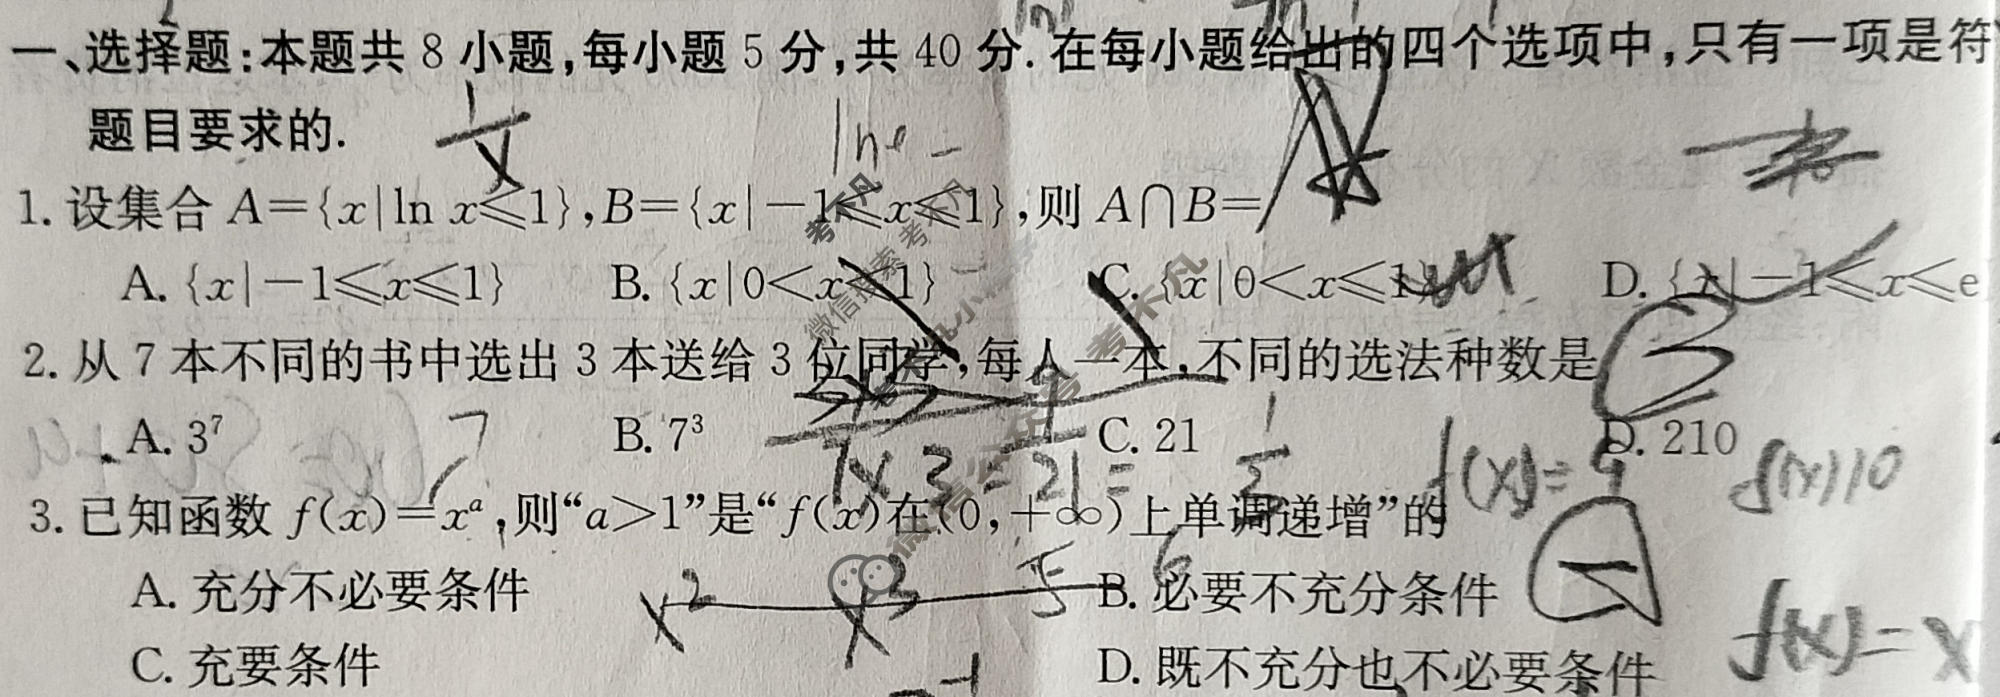 一、选择题:本题共 8 小题,每小题 5 分,共 40 分. 在每小题给出的四个选项中,只有一项是符
题目要求的.
1. 设集合 A={x|ln x≤1},B={x|-1≤x≤1},则 A∩B=
A. {x|-1≤x≤1} B. {x|0<x≤1} C. {x|0<x≤1} D. {x|-1≤x≤e
2. 从 7 本不同的书中选出 3 本送给 3 位同学,每人一本,不同的选法种数是
A. 3⁷ B. 7³ C. 21 D. 210
7×3=21=
f(x)=
f(x)
3. 已知函数 f(x)=xᵃ,则“a>1”是“f(x)在(0,+∞)上单调递增”的
A. 充分不必要条件 B. 必要不充分条件
x² x³
f(x)=x
C. 充要条件 D. 既不充分也不必要条件
考不凡
微信搜索
考不凡